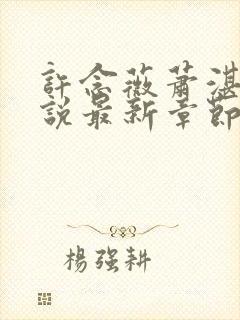 許念薇蕭湛
說最新章節
楊强耕